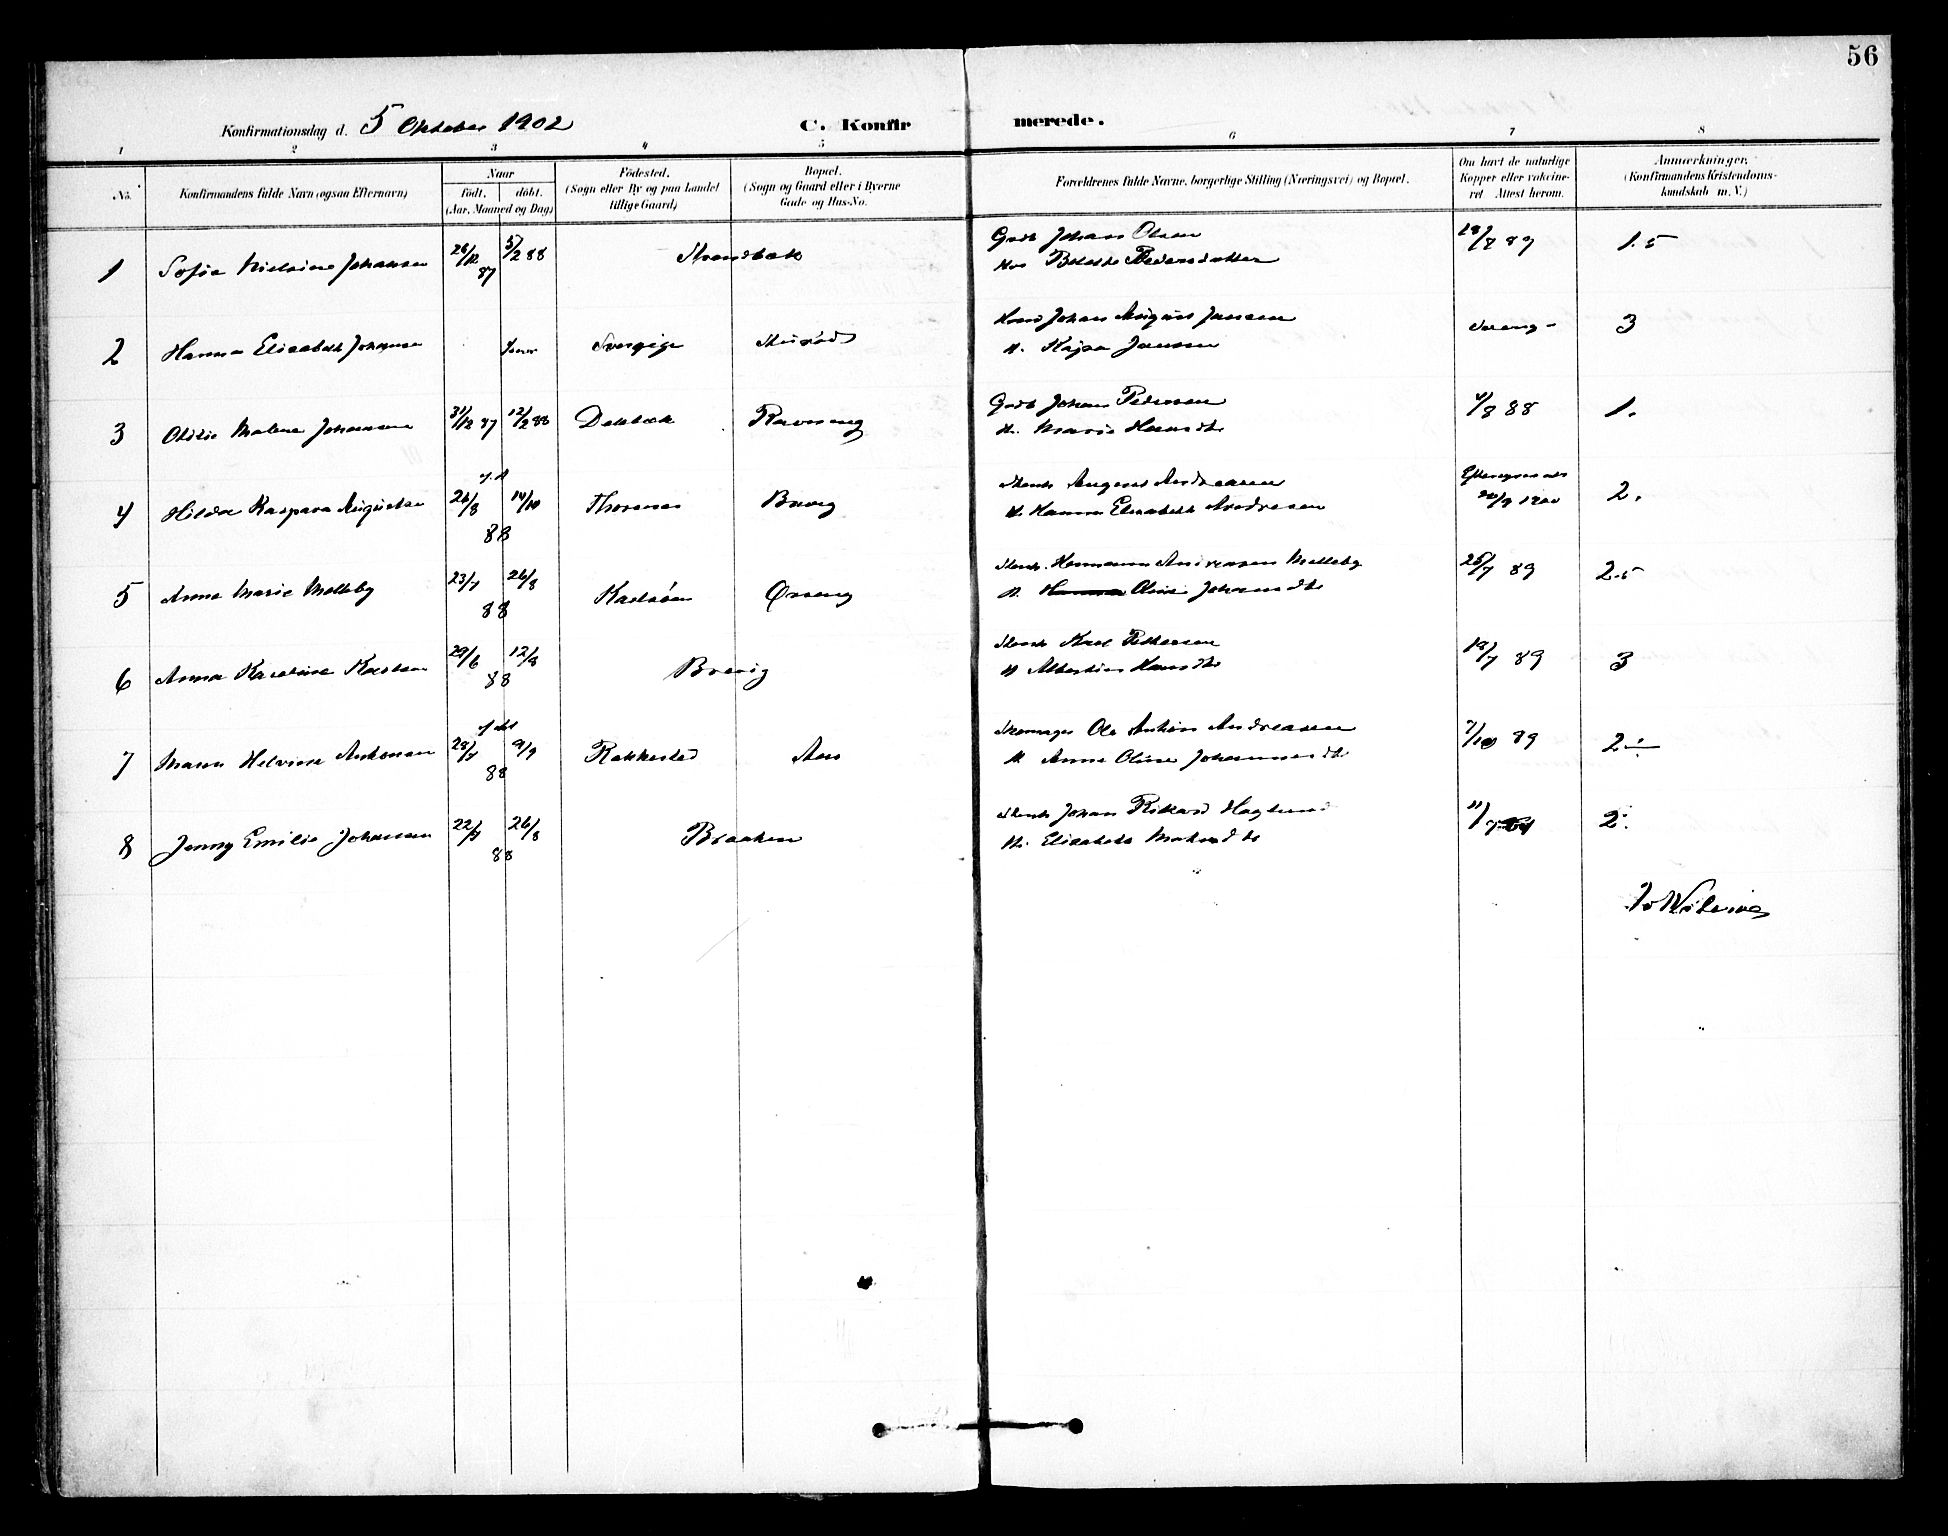 56
Konfirmationsdag d. 5 Oktober 1902
C. Konfirmerede.
1 2 3 4 5 6 7 8
No.
Konfirmandens fulde Navn (ogsaa Efternavn)
Naar
født, døbt.
(Aar, Maaned og Dag)
Födested.
(Sogn eller By og paa Landet
tillige Gaard)
Bopæl.
(Sogn og Gaard eller i Byerne
Gade og Hus-No.
Forældrenes fulde Navne, borgerlige Stilling (Næringsvei) og Bopæl.
Om havt de naturlige
Kopper eller vakcine-
ret Attest herom.
Anmærkninger.
(Konfirmandens Kristendoms-
kundskab m. V.)
1 Sofie Nielsine Johansen 28/12 87 5/2 88 Strandbæk
Grdb Johans Olsen
Pedersdatter
18/8 89 1.5
2 Hanna Elisabeth Johansen Sverige
Johan August Jansen
H. Kajsa Jansen
3
3 Otilie Malene Johansen 31/12 87 12/2 88 Dalsbæk
Grdb Johan Pedersen
H. Marie Hansdtr
4/8 88 1.
4 Hilda Kaspara Augustsen 26/8 14/10 88 Thorsnes Brevig
August Andreasen
H. Hanna Elisabeth Andresen
2.
5 Anna Marie Melleby 23/7 26/8 88
Hermann Andreasen Melleby
H. Oline Johansdtr
25/7 89 2.5
6 Anna Karoline Karlsen 29/6 12/8 88 Brevig
Karl Pettersen
H Albertine Hansdtr
19/7 89 3
7 Helvine Antonsen 28/7 9/9 88 Rakkestad Aas
Skomager Ole Anton Andreasen
H. Anne Oline Johannesdtr
7/10 89 2
8 Jenny Emilie Johansen 22/7 26/8 88 Braaten
Johan Rikard Haglund
H. Elisabeth
2.